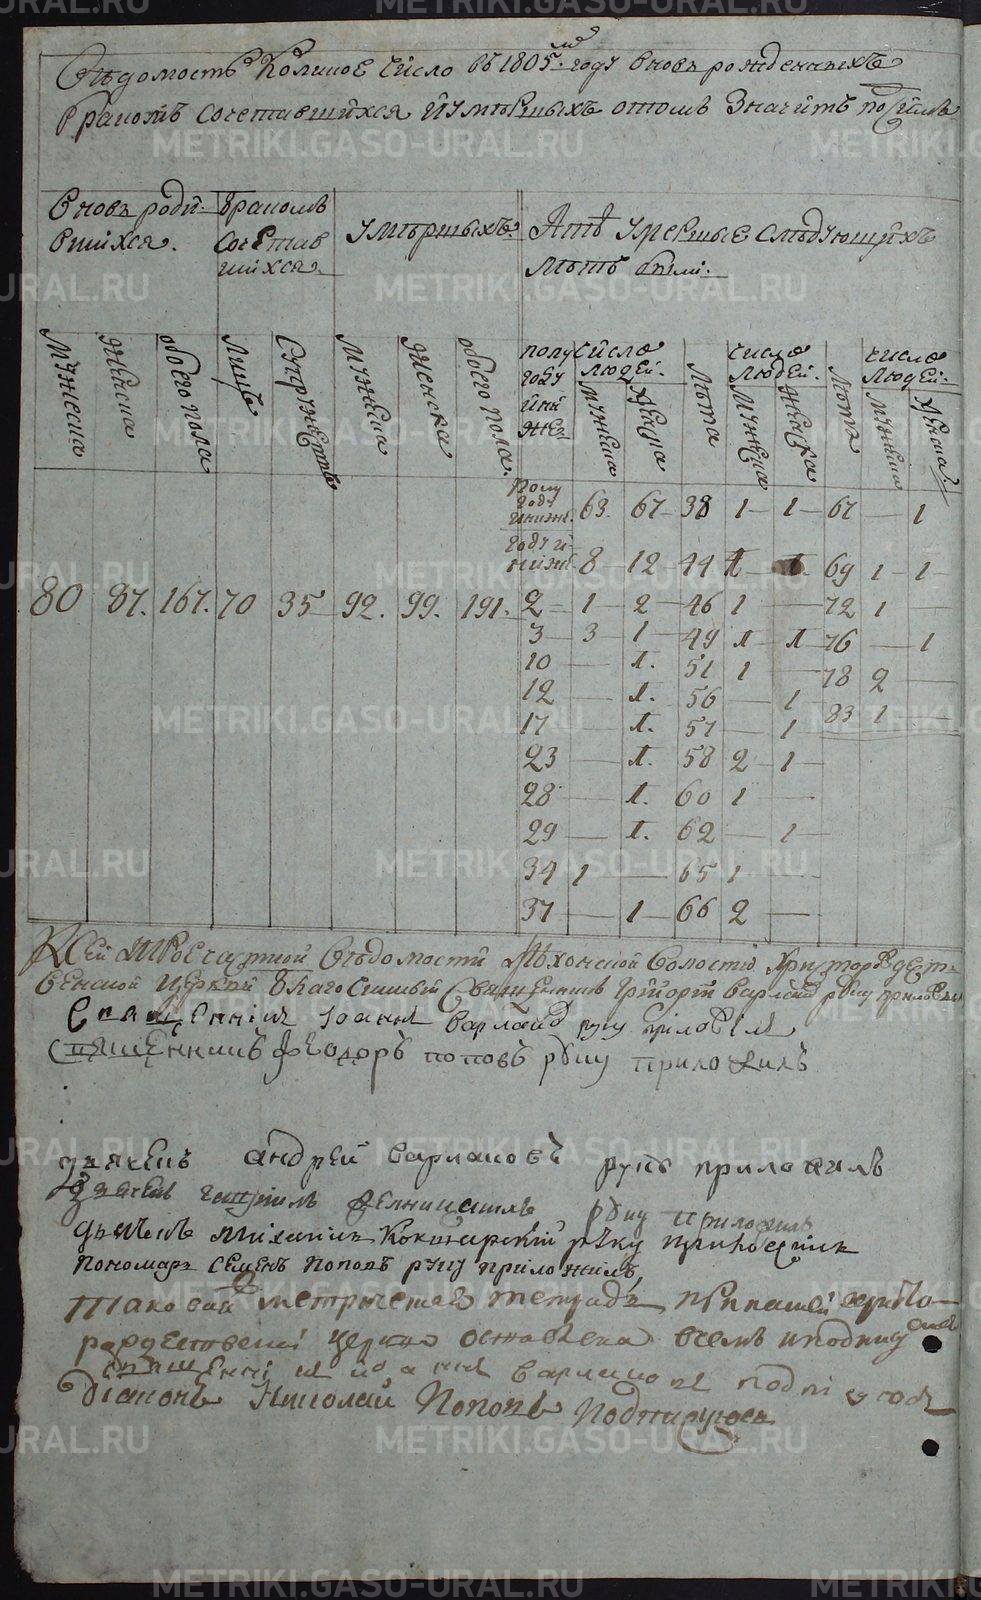 Ведомость Коликое Число въ 1805.мъ году вновь рожденныхъ
бракомъ сочетавшихся и умершыхъ о томъ значитъ
Вновь роди-
вшихся.
бракомъ
сочетав
шихся
умершыхъ
А те умершые следующихъ
летъ были.
Мужеска
Женска
обоего пола
Лицъ
Супружествъ
Мужеска
женска
обоего пола.
полу
году
и ни
же
Число
людей.
Мужеска
Женска
Лета
число
людей.
Мужеска
Женска
Лета
число
людей.
Мужеска
Женска
Полу
году
и ниже. 63. 67 38 1 1 67 — 1
году и
ниже 8 12 44 1 1 69 1 1
80 87. 167. 70 35 92. 99. 191. 2 1 2 46 1 — 72 1 —
3 3 1 49 1 1 76 — 1
10 — 1. 51 1 — 78 2 —
12 — 1. 56 — 1 83 1 —
17 — 1. 57 — 1
23 — 1. 58 2 1
28 — 1. 60 1 —
29 — 1. 62 — 1
34 1 — 65 1 —
37 — 1 66 2 —
Ксей ведомости волости Христорождест-
венской церкви Благочинный Священникъ Григорий руку приложилъ
Священникъ Иоаннъ руку приложилъ
Священникъ Феодоръ Поповъ руку приложилъ
дьячекъ андрей варлаковъ руку приложилъ
дьячекъ руку приложилъ
дьячекъ михаилъ руку приложилъ
пономарь Семенъ Поповъ руку приложилъ
таковая тетрадь при нашей христо-
рождественской церкви оставлена
священникъ иоаннъ варлаковъ подписуюсь
Диаконъ Николай Поповъ подписуюсь
METRIKI.GASO-URAL.RU